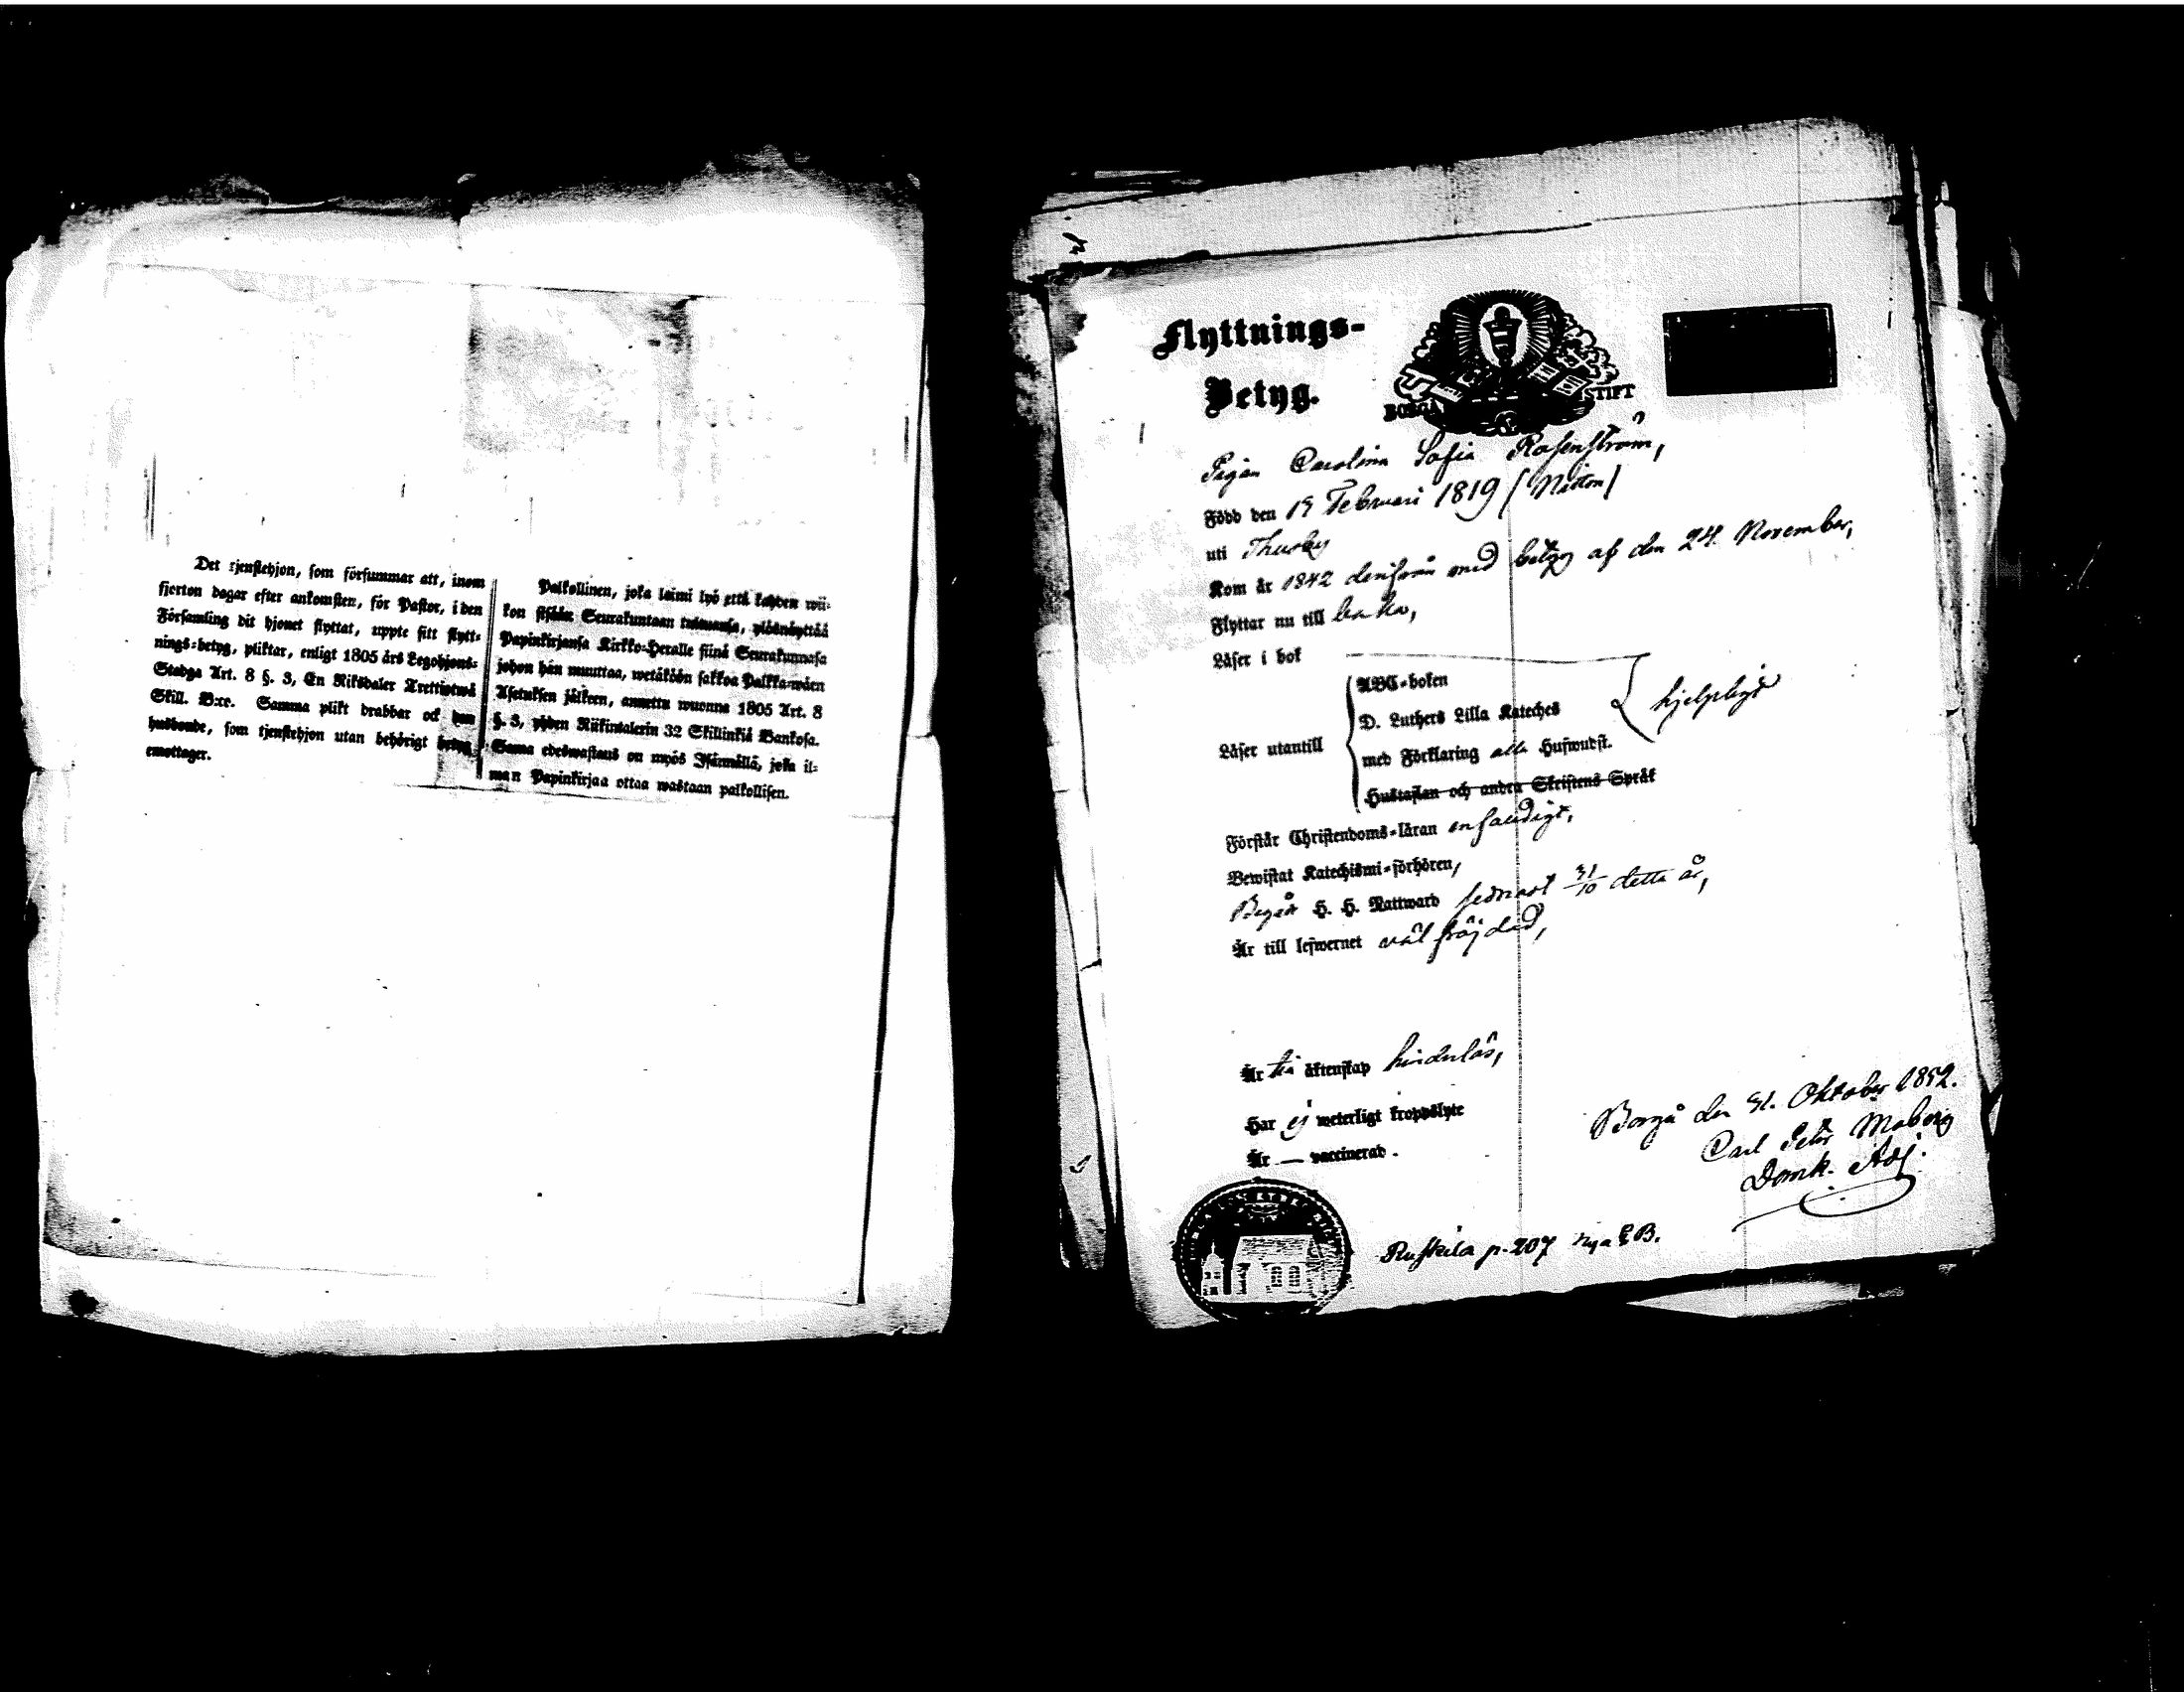 Det tjenstehjon, som försummar att, inom
fjorton dagar efter ankomsten, för Pastor, i den
Församling dit hjonet flyttat, uppte sitt flytt-
nings-betyg, pliktar, enligt 1805 års Legohjons-
Stadga Art. 8 §. 3, En Riksdaler Trettiotwå
Skill. B:co. Samma plikt drabbar ock den
husbonde, som tjenstehjon utan behörigt betyg
emottager.
Palkollinen, joka laimi lyö että kahden wii-
kon sisään Seurakuntaan tultuansa, ylösnäyttää
Papinkirjansa Kirkko-Herralle siinä Seurakunnasa
johon hän muuttaa, wetäköön sakkoa Palkka-wäen
Asetuksen jälkeen, annettu wuonna 1805 Art. 8
§. 3, yhden Riikintalerin 32 Skillinkiä Bankosa.
Sama edeswastaus on myös Isännällä, joka il-
man Papinkirjaa ottaa wastaan palkollisen.
Flyttnings-
Betyg.
BORGÅ STIFT
Pigan Carolina Sofia Rosenström,
Född den 19 Februari 1819 (Nitton)
uti Thusby
Kom år 1842 derifrån med betyg af den 24 November,
Flyttar nu till baka,
Läser i bok
Läser utantill
ABC-boken
D. Luthers Lilla Kateches
med Förklaring alla Hufwudst.
Hustaflan och andra Skriftens Språk
hjelpligt
Förstår Christendoms-läran enfaldigt,
Bewistat Katechismi-förhören,
Begått H. H. Nattward sednast 31/10 detta år,
Är till lefwernet väl fräjdad,
Är till äktenskap hinderlös,
Har ej weterligt kroppslyte
Är — vaccinerad.
Borgå den 31. Oktober 1852.
Carl Petr Moberg
Domk. Adj.
Ruskila p. 207 nya C.B.